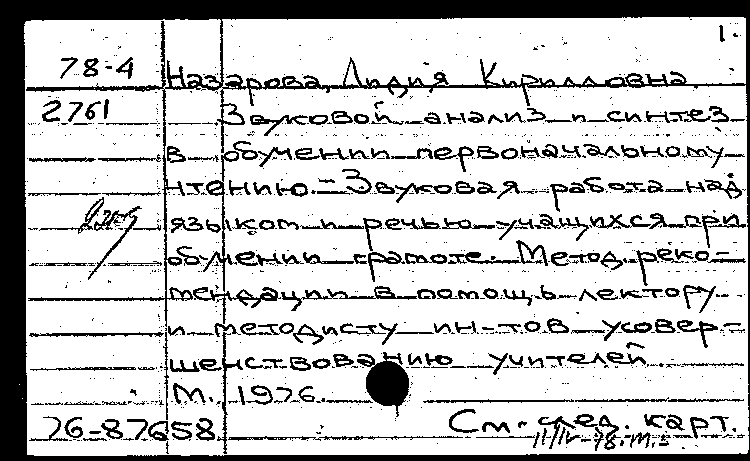 1.
78-4 Назарова, Лидия Кирилловна.
2761 Звуковой анализ и синтез
в обучении первоначальному
чтению. - Звуковая работа над
языком и речью учащихся при
обучении грамоте. Метод. реко-
мендации в помощь лектору
и методисту ин-тов усовер-
шенствованию учителей.
М., 1976.
76-87658 См. след. карт.
11/IV-78.